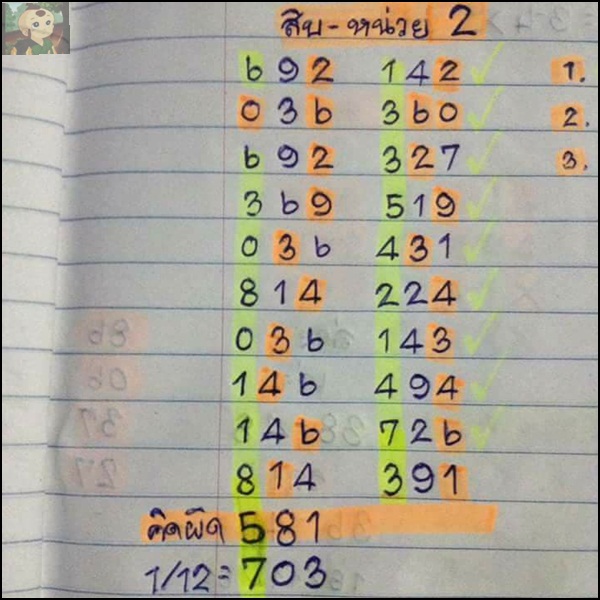 สิบ-หน่วย 2
692 142 1.
036 360 2.
692 327 3.
369 519
036 431
814 224
036 143
146 494
146 726
814 391
คิดผิด 581
1/12 = 703